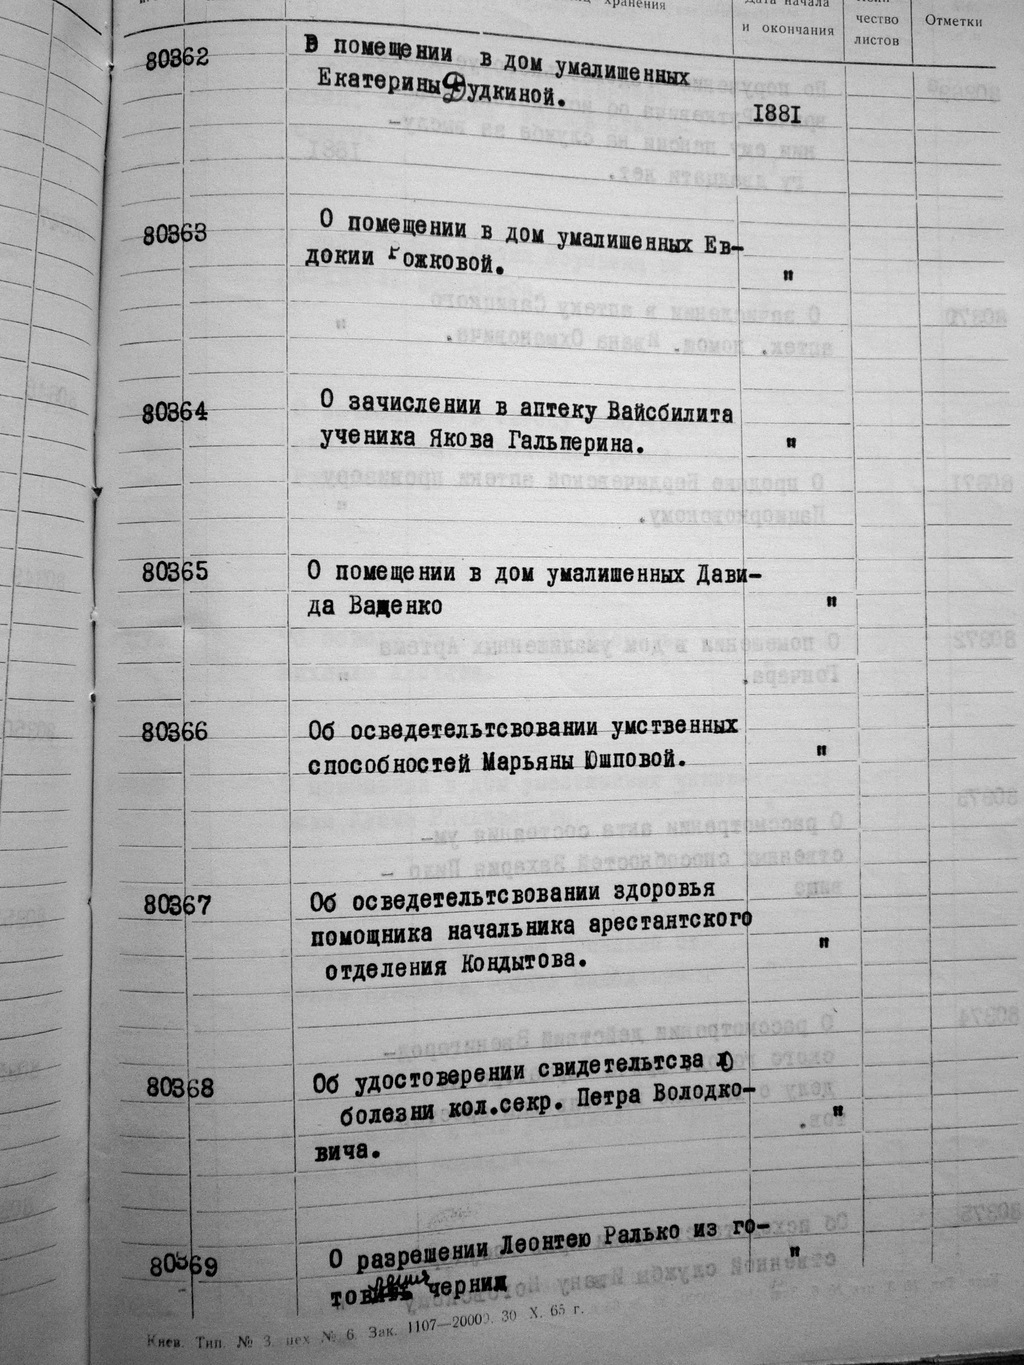 хранения
Дата начала
и окончания
чество
листов
Отметки
80362
В помещении в дом умалишенных
Екатерины Дудкиной.
1881
80363
О помещении в дом умалишенных Ев-
докии Рожковой.
"
80364
О зачислении в аптеку Вайсбилита
ученика Якова Гальперина.
"
80365
О помещении в дом умалишенных Дави-
да Ваценко
"
80366
Об осведетельтсвовании умственных
способностей Марьяны Юшповой.
"
80367
Об осведетельтсвовании здоровья
помощника начальника арестантского
отделения Кондытова.
"
80368
Об удостоверении свидетельтсва о
болезни кол.секр. Петра Володко-
вича.
"
80369
О разрешении Леонтею Ралько из го-
товления чернил
"
Киев. Тип. № 3 цех № 6. Зак. 1107—20000. 30 X. 65 г.